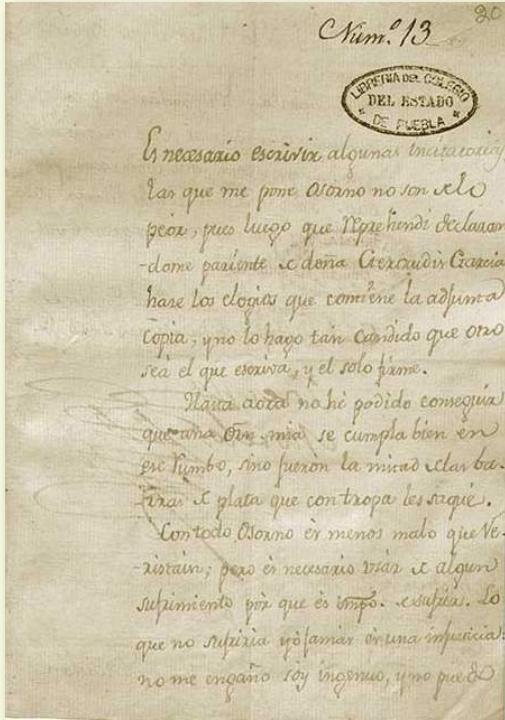 20
Num.º 13
LIBRERIA DEL COLEGIO
DEL ESTADO
DE PUEBLA
Es necesario escrivir algunas incitatorias
las que me pone Osorno no son de lo
peor, pues luego que reprehendi declaran
-dome pariente de doña Gertrudis Garcia
hase los elogios que contiene la adjunta
copia, y no lo hago tan Candido que otro
sea el que escriva, y el solo firme.
Hasta aora no hé podido conseguir
que una Orn. mia se cumpla bien en
ese rumbo, sino fueron la mitad de las ba-
rras de plata que con tropa les saqué.
Con todo, Osorno és menos malo que Ve-
-ristain; pero és necesario usár de algun
sufrimiento pór que és tmpo. de sufrir. Lo
que no sufriria yo jamás és una injusticia:
no me engaño soy ingenuo, y no puedo